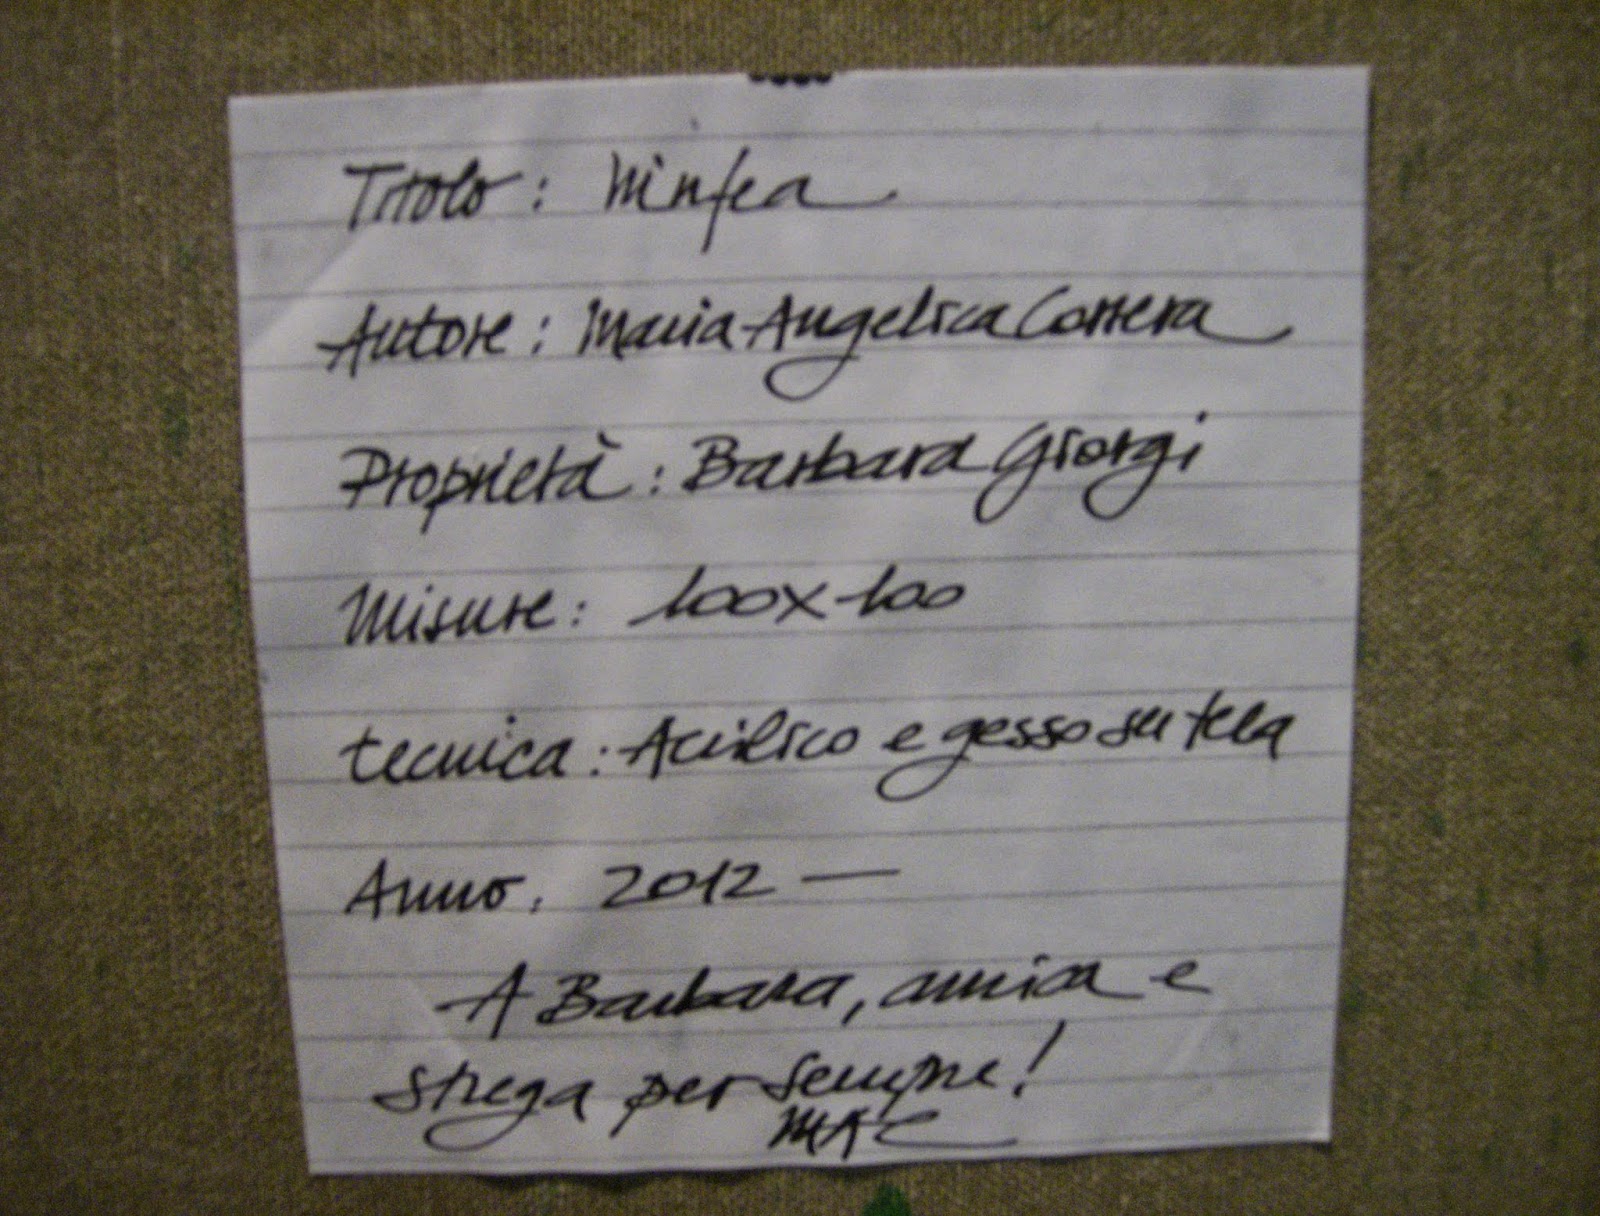 Titolo: Ninfea
Autore: Maria Angelica Correra
Proprietà: Barbara Giorgi
Misure: 100x100
tecnica: Acrilico e gesso su tela
Anno: 2012 —
A Barbara, amica e
strega per sempre!
MAC